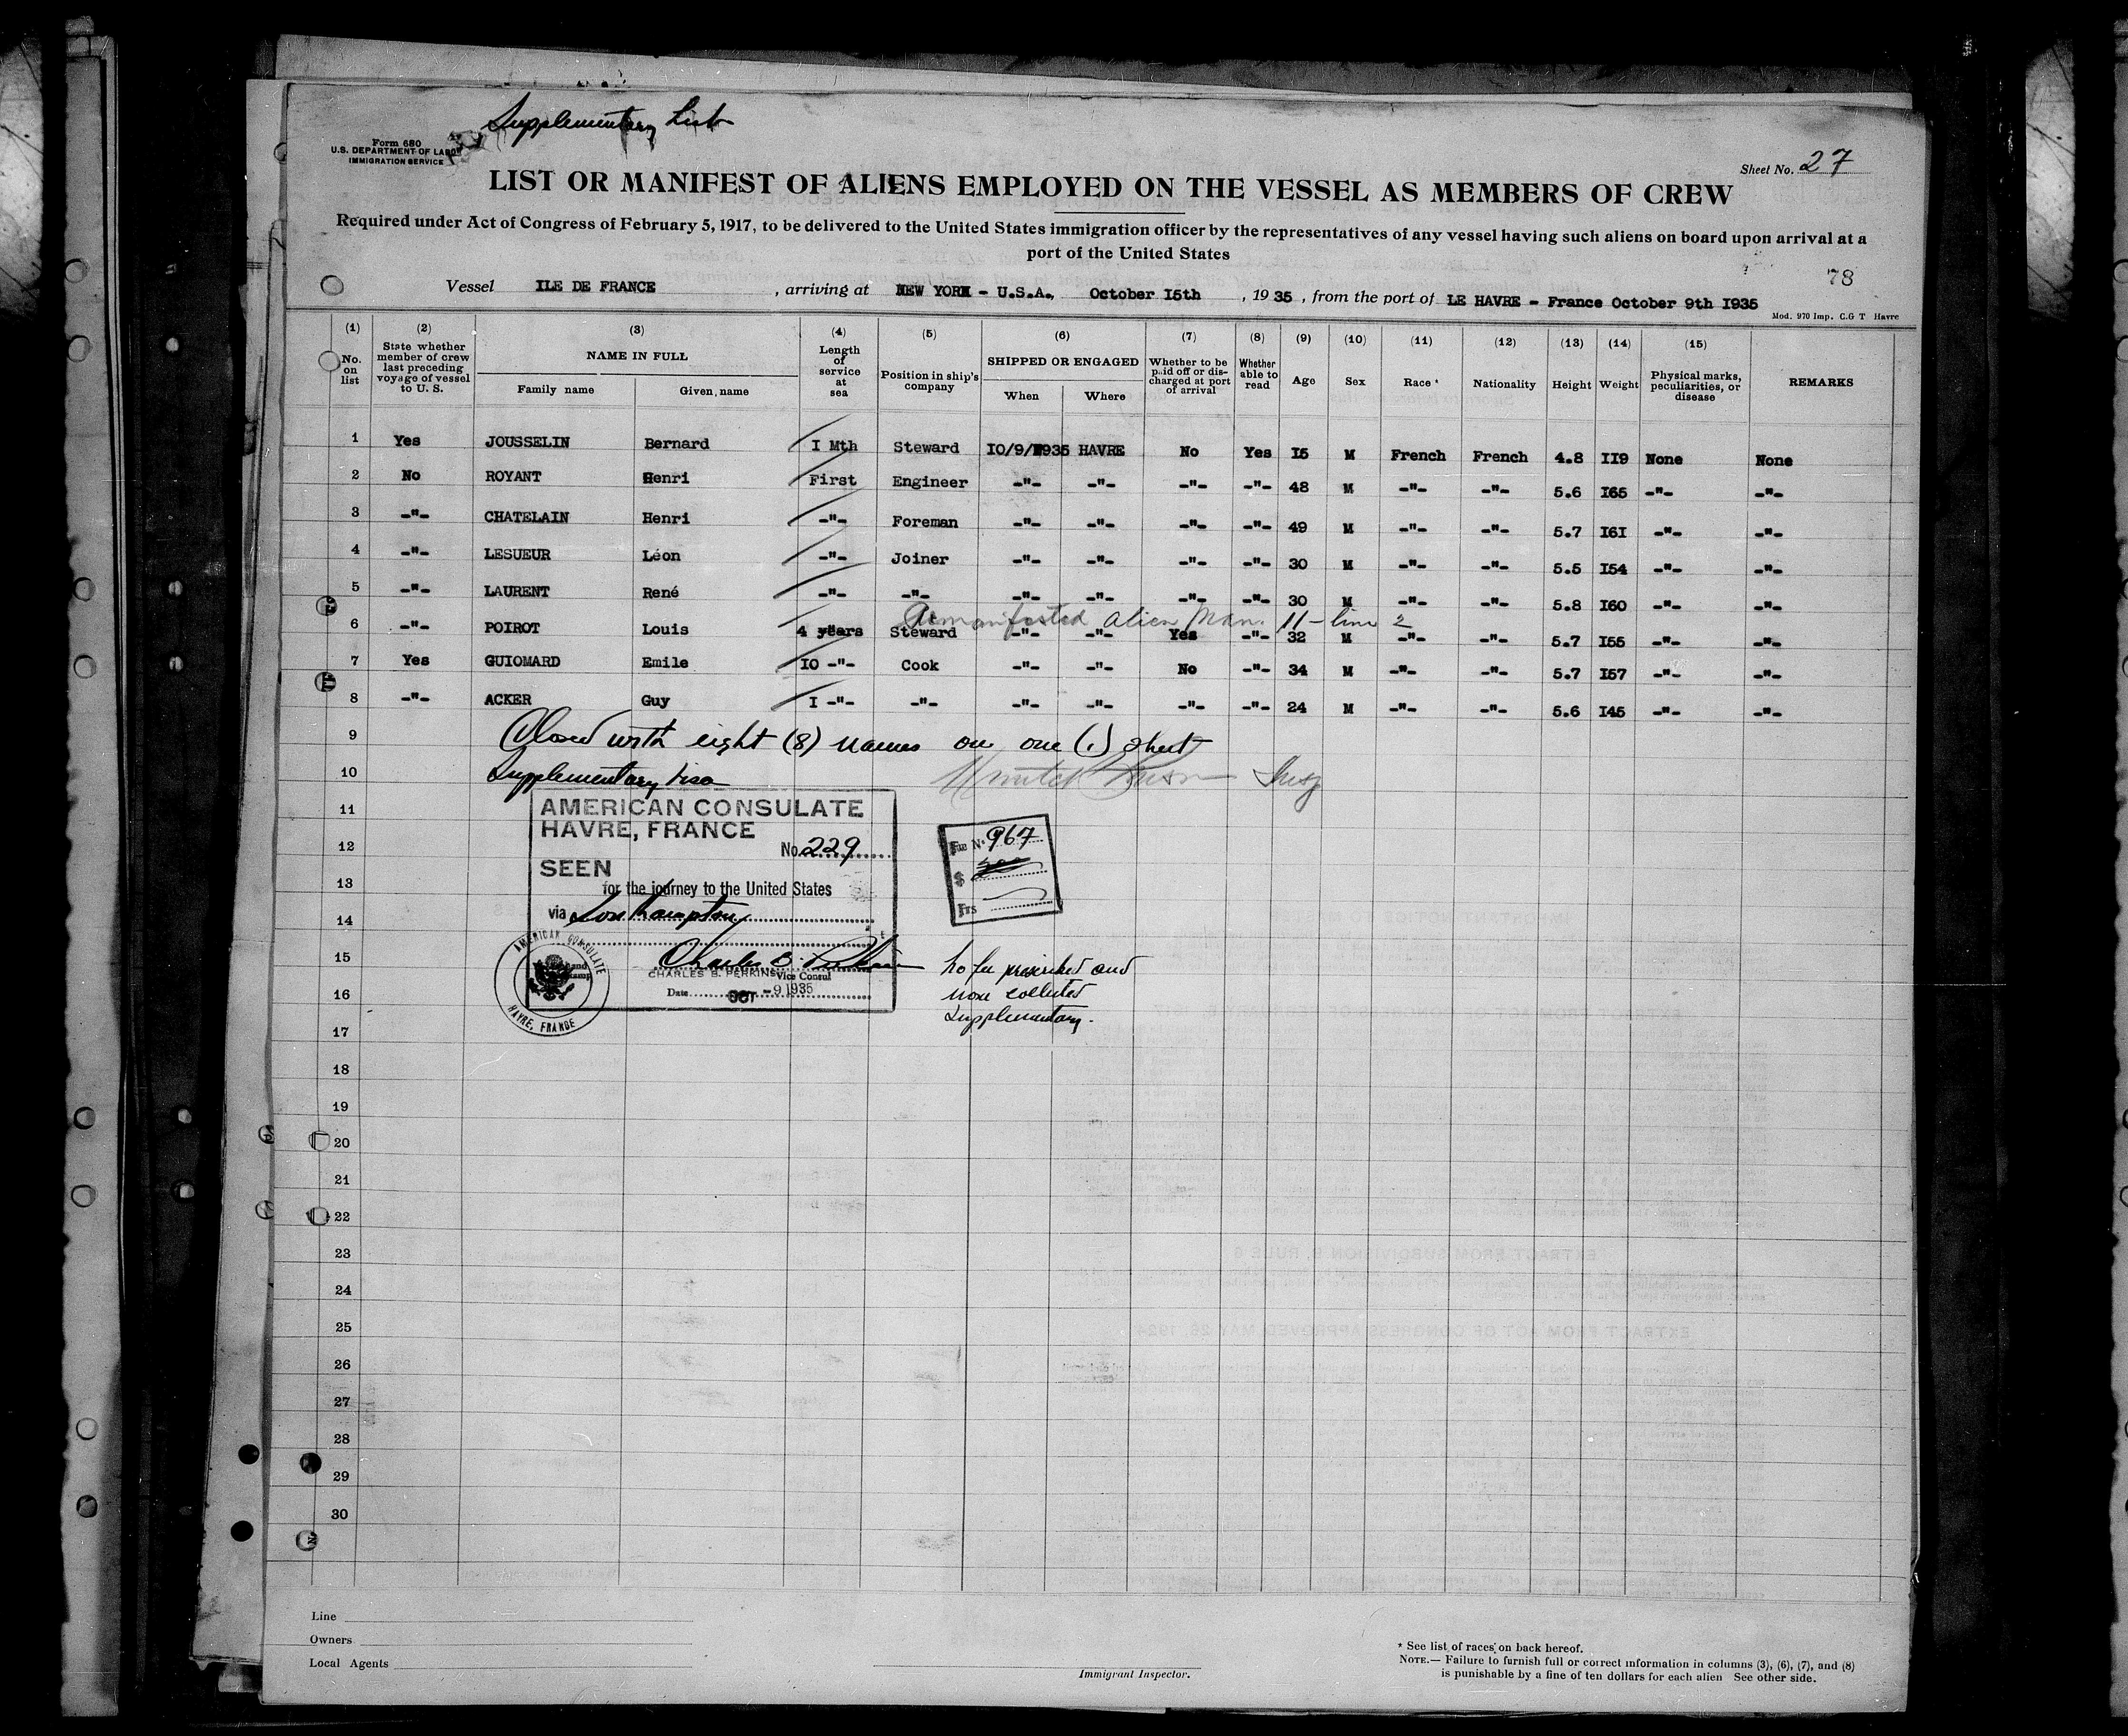 Supplementary List
Form 680
U.S. DEPARTMENT OF LABOR
IMMIGRATION SERVICE
Sheet No. 27
LIST OR MANIFEST OF ALIENS EMPLOYED ON THE VESSEL AS MEMBERS OF CREW
Required under Act of Congress of February 5, 1917, to be delivered to the United States immigration officer by the representatives of any vessel having such aliens on board upon arrival at a
port of the United States
78
Vessel ILE DE FRANCE , arriving at NEW YORK - U.S.A., October I5th , 19 35 , from the port of LE HAVRE - France October 9th I935
Mod. 970 Imp. C.G T Havre
(1) No. on list (2) State whether member of crew last preceding voyage of vessel to U. S. (3) NAME IN FULL Family name Given name (4) Length of service at sea (5) Position in ship's company (6) SHIPPED OR ENGAGED When Where (7) Whether to be paid off or discharged at port of arrival (8) Whether able to read (9) Age (10) Sex (11) Race * (12) Nationality (13) Height (14) Weight (15) Physical marks, peculiarities, or disease REMARKS
1 Yes JOUSSELIN Bernard I Mth Steward IO/9/I935 HAVRE No Yes I5 M French French 4.8 II9 None None
2 No ROYANT Henri First Engineer -"- -"- -"- -"- 48 M -"- -"- 5.6 I65 -"- -"-
3 -"- CHATELAIN Henri -"- Foreman -"- -"- -"- -"- 49 M -"- -"- 5.7 I6I -"- -"-
4 -"- LESUEUR Léon -"- Joiner -"- -"- -"- -"- 30 M -"- -"- 5.5 I54 -"- -"-
5 -"- LAURENT René -"- -"- -"- -"- -"- -"- 30 M -"- -"- 5.8 I60 -"- -"-
manifested alien Man. 11 - line 2
6 -"- POIROT Louis 4 years Steward -"- -"- Yes -"- 32 M -"- -"- 5.7 I55 -"- -"-
7 Yes GUIOMARD Emile IO -"- Cook -"- -"- No -"- 34 M -"- -"- 5.7 I57 -"- -"-
8 -"- ACKER Guy I -"- -"- -"- -"- -"- -"- 24 M -"- -"- 5.6 I45 -"- -"-
9 Closed with eight (8) names on one (1) sheet
10 Supplementary visa
11
12
13
14
15
16
17
18
19
20
21
22
23
24
25
26
27
28
29
30
AMERICAN CONSULATE
HAVRE, FRANCE
No. 229
SEEN
for the journey to the United States
via Southampton
Charles B. Perkins
CHARLES B. PERKINS Vice Consul
Date OCT -9 1935
AMERICAN CONSULATE
HAVRE, FRANCE
Fee No. 967
$
Frs
No fee prescribed and
none collected
Supplementary.
Line
Owners
Local Agents
Immigrant Inspector.
* See list of races on back hereof.
NOTE.— Failure to furnish full or correct information in columns (3), (6), (7), and (8)
is punishable by a fine of ten dollars for each alien See other side.